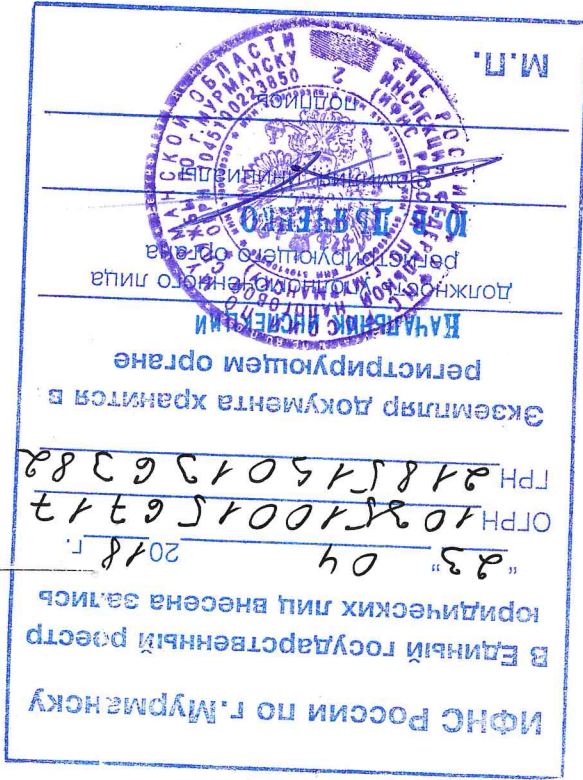 ИФНС России по г.Мурманску
В Единый государственный реестр
юридических лиц внесена запись
"23" 04 2018 г.
ОГРН 1035100156717
ГРН 2185190136382
Экземпляр документа хранится в
регистрирующем органе
НАЧАЛЬНИК ИНСПЕКЦИИ
должность уполномоченного лица
регистрирующего органа
Ю.В. ДЬЯЧЕНКО
фамилия, инициалы
подпись
М.П.
2